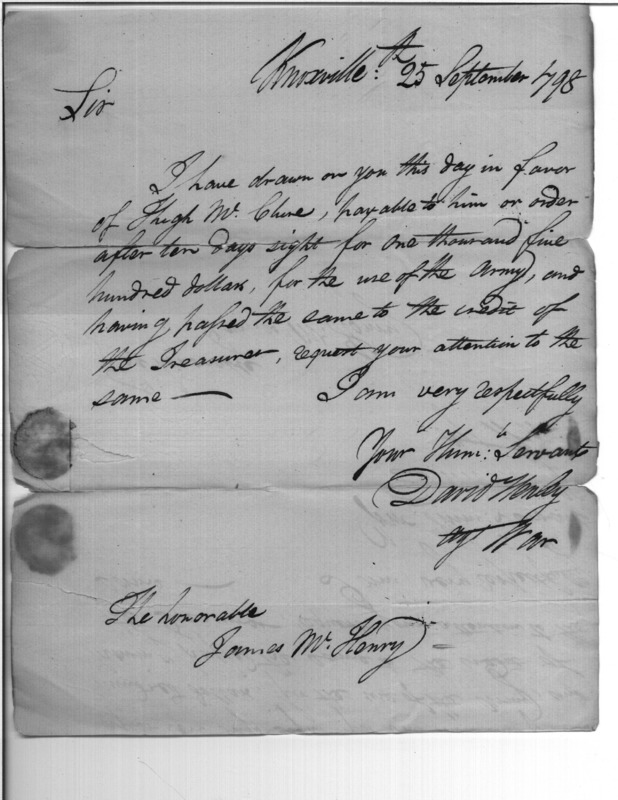 Knoxville: 25th September 1798
Sir
I have drawn on you this day in favor
of Hugh Mc. Clure, payable to him or order
after ten days sight for one thousand five
hundred dollars, for the use of the Army, and
having passed the same to the credit of
the Treasurer, request your attention to the
same — I am very respectfully
Your Hum: le Servant
David Henley
agt War
The honorable
James Mc. Henry